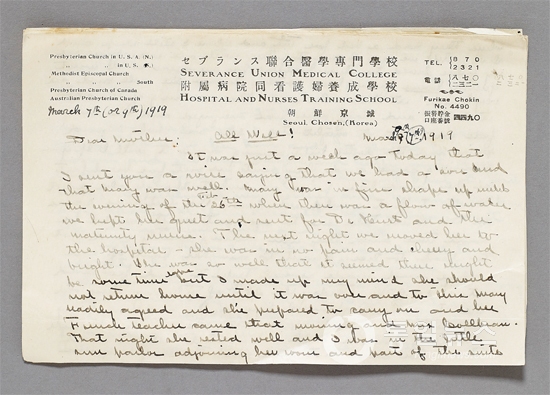 Presbyterian Church in U. S. A. (N.)
" " in U. S. (S.)
Methodist Episcopal Church
" " " South
Presbyterian Church of Canada
Australian Presbyterian Church
セブランス聯合醫學專門學校
SEVERANCE UNION MEDICAL COLLEGE
附屬病院同看護婦養成學校
HOSPITAL AND NURSES TRAINING SCHOOL
朝鮮京城
Seoul, Chosen, (Korea)
TEL. 870
2321
電話 八七〇
二三二一
Furikae Chokin
No. 4490
振替貯金
口座番號 四四九〇
March 7th (or 9th) 1919
March 1919
Dear Mother, All Well!
It was just a week ago today that
I sent you a note saying that we had a son and
that Mary was well. Mary was in fine shape up until
the evening of the 26th when there was a flow of water
we kept her quiet and sent for Dr and the
maternity nurse. The next night we moved her to
the hospital - she was in no pain and cheery and
bright. She was so well that it seemed there might
be some time but I made up my mind she should
not return home until it was over and to this Mary
readily agreed and she prepared to carry on and her
French teacher came that morning
That night she rested well and I was in the little
sun parlor adjoining her room and part of the suite